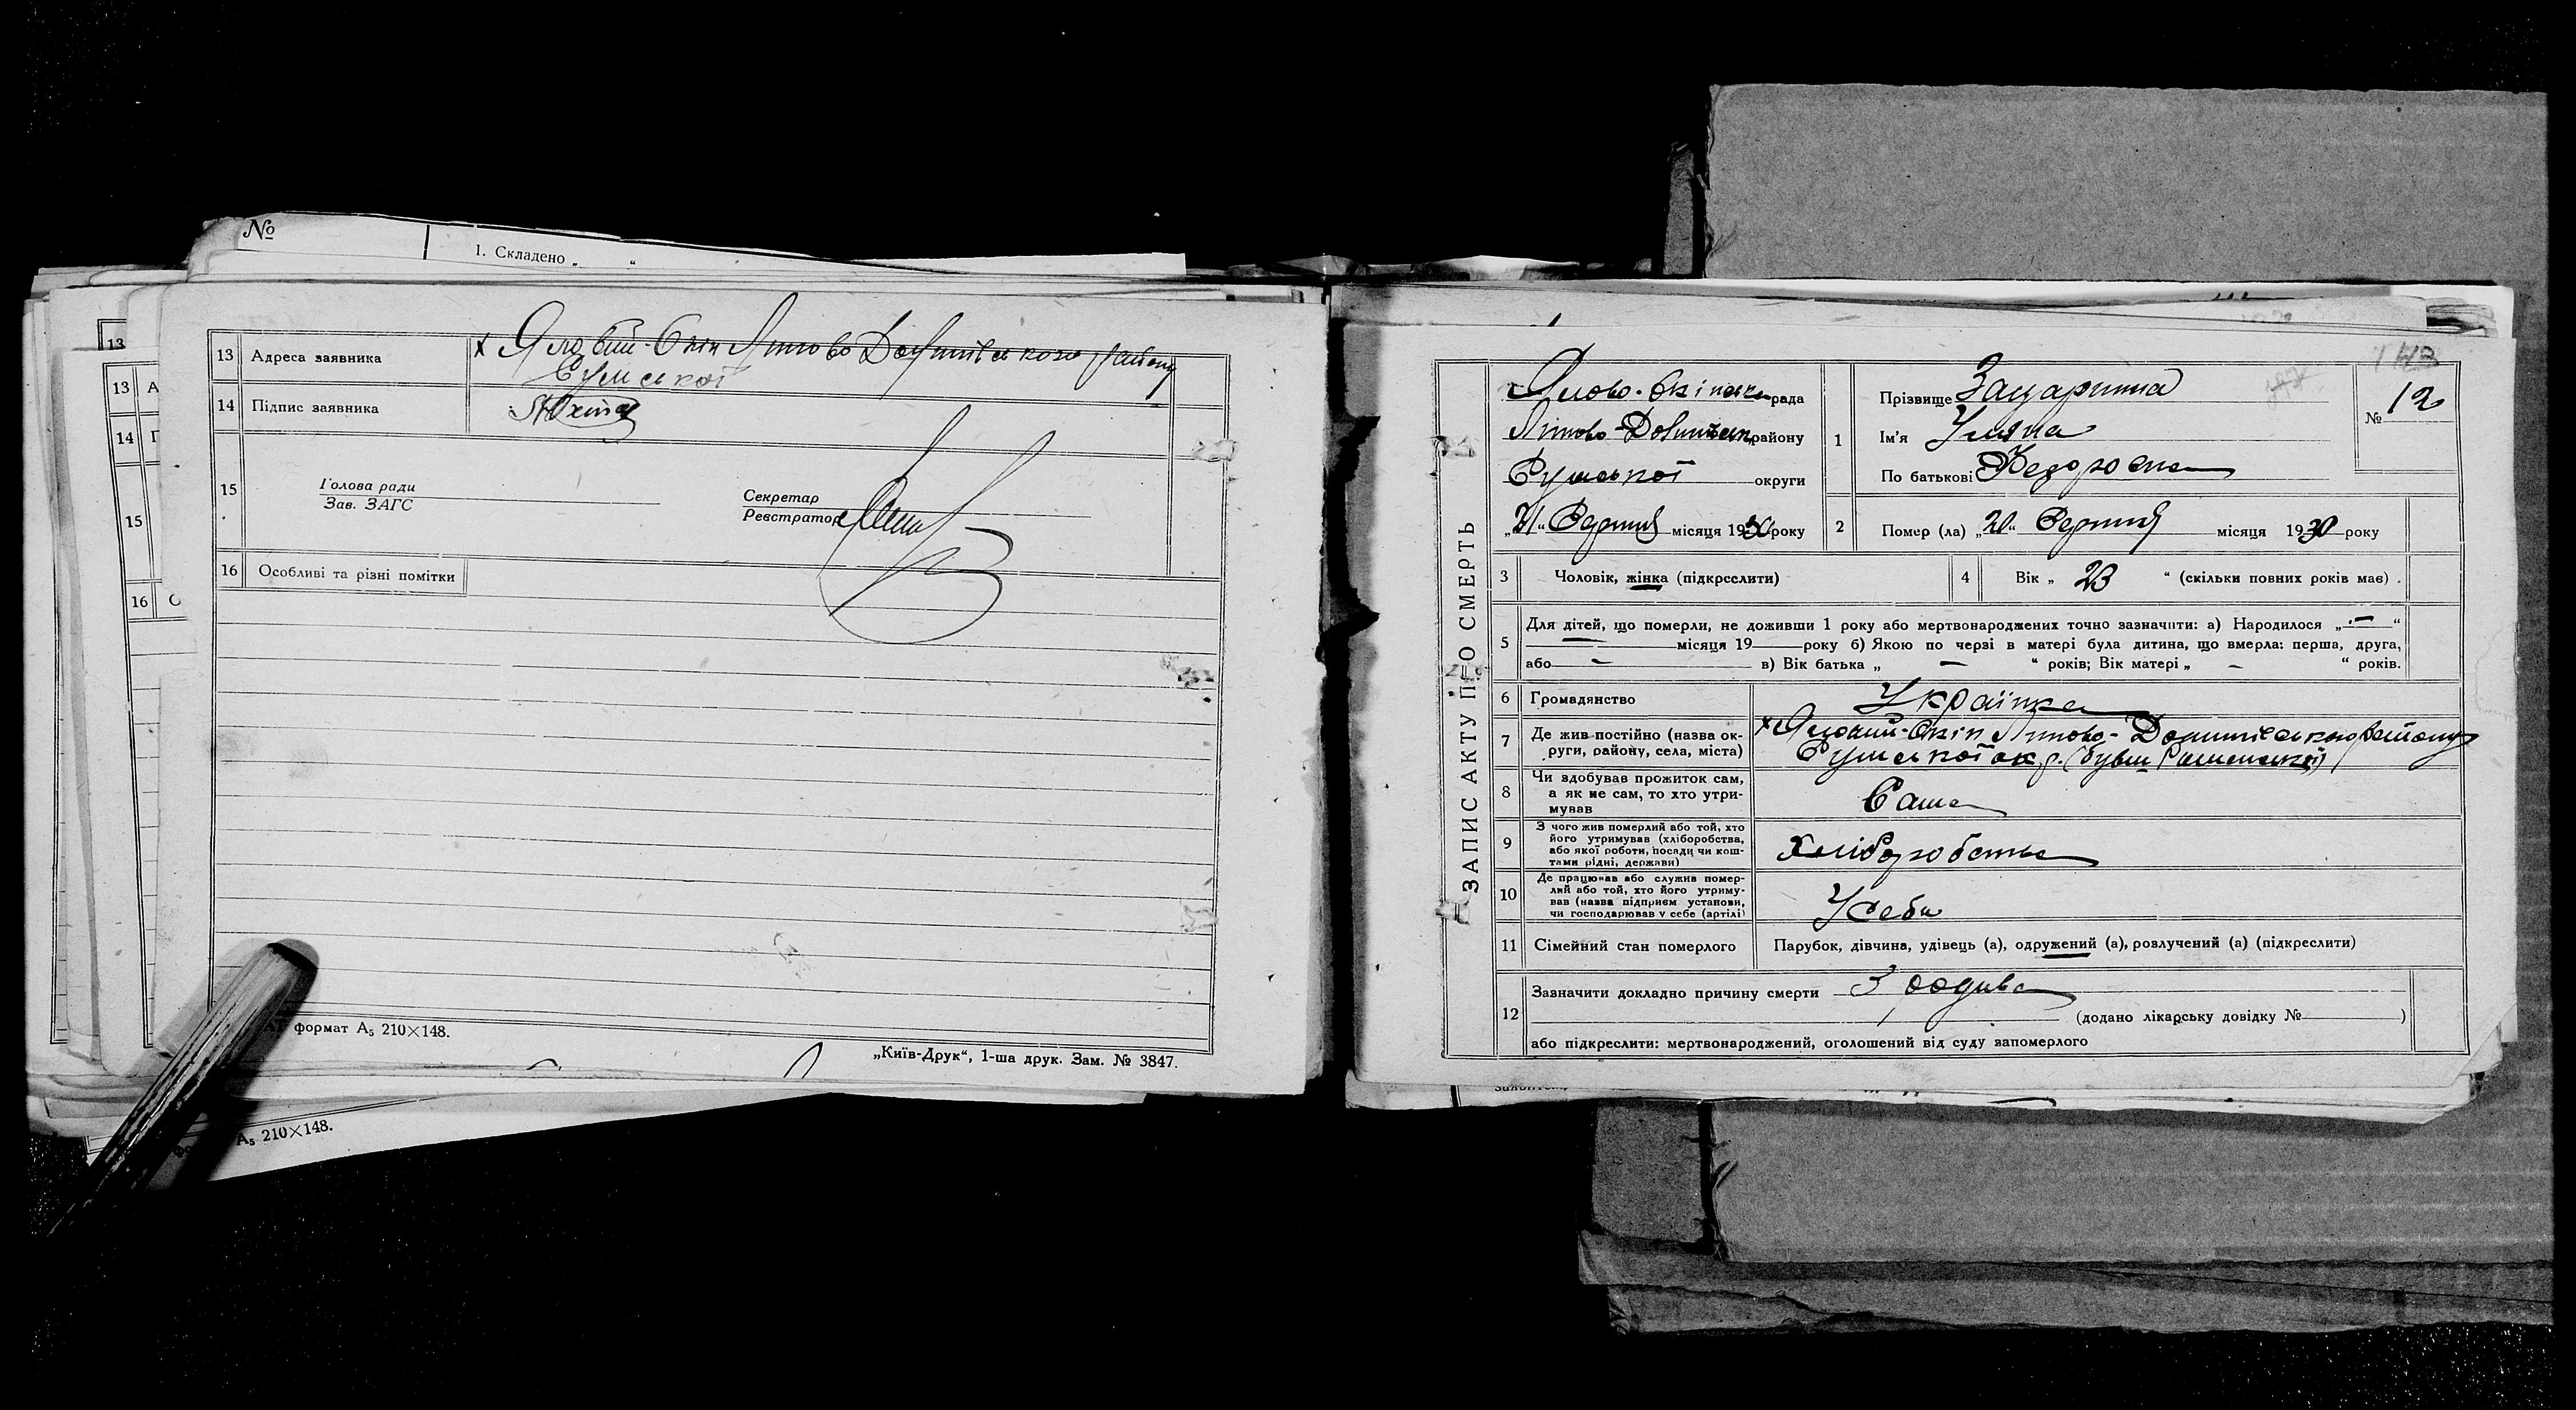 №
1. Складено „ “
13
13 А
14
15
16 С
13 Адреса заявника х Яловий-Окіп Липово Долинського району
Сумської
14 Підпис заявника
15 Голова ради
Зав. ЗАГС
Секретар
Реєстратор
16 Особливі та різні помітки
формат А₅ 210×148.
„Київ-Друк“, 1-ша друк. Зам. № 3847.
А₅ 210×148.
ЗАПИС АКТУ ПРО СМЕРТЬ
Ялово-Окіпська рада
Липово-Долинськ району
Сумської округи
„21“ Серпня місяця 1930 року
1 Прізвище
Ім'я Уляна
По батькові Федоровна
№ 12
2 Помер (ла) „20“ Серпня місяця 1930 року
3 Чоловік, жінка (підкреслити)
4 Вік „ 23 “ (скільки повних років має)
5 Для дітей, що померли, не доживши 1 року або мертвонароджених точно зазначити: а) Народилося „—“
— місяця 19 року б) Якою по черзі в матері була дитина, що вмерла: перша, друга,
або — в) Вік батька „ — “ років; Вік матері „ — “ років.
6 Громадянство Українка
7 Де жив постійно (назва округи, району, села, міста) х Яловий-Окіп Липово-Долинського району
Сумської окр. (бувш Роменської)
8 Чи здобував прожиток сам,
а як не сам, то хто утри-
мував Сама
9 З чого жив померлий або той, хто
його утримував (хліборобства,
або якої роботи, посади чи кош-
тами рідні, держави) Хліборобства
10 Де працював або служив помер-
лий або той, хто його утриму-
вав (назва підприєм установи,
чи господарював у себе (артілі) У себе
11 Сімейний стан померлого Парубок, дівчина, удівець (а), одружений (а), розлучений (а) (підкреслити)
12 Зазначити докладно причину смерти
(додано лікарську довідку № )
або підкреслити: мертвонароджений, оголошений від суду запомерлого